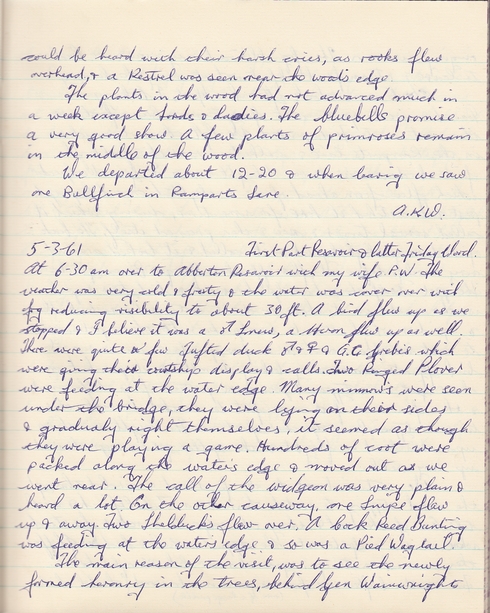 could be heard with their harsh cries, as rooks flew
overhead, & a Kestrel was seen near the woods edge.
The plants in the wood had not advanced much in
a week except lords & ladies. The bluebells promise
a very good show. A few plants of primroses remain
in the middle of the wood.
We departed about 12-20 & when leaving we saw
one Bullfinch in Ramparts Lane.
A.K.W.
5-3-61 First Part Resavoir & latter Friday Wood.
At 6-30 am over to Abberton Resavoir with my wife P.W. The
weather was very cold & frosty & the water was cover over with
fog reducing visibility to about 30 ft. A bird flew up as we
stopped & I believe it was a ♂ Smew, a Heron flew up as well.
There were quite a few Tufted duck ♂ & ♀ & G.C. Grebis which
were giving their courtship display & calls. Two Ringed Plover
were feeding at the water edge. Many minnows were seen
under the bridge, they were lying on their sides
& gradualy right themselves, it seemed as though
they were playing a game. Hundreds of coot were
packed along the water's edge & moved out as we
went near. The call of the widgeon was very plain &
heard a lot. On the other causeway, one Snipe flew
up & away. Two Shelducks flew over. A Cock Reed Bunting
was feeding at the waters edge & so was a Pied Wagtail.
The main reason of the visit, was to see the newly
formed heronry in the trees, behind Wainwrights